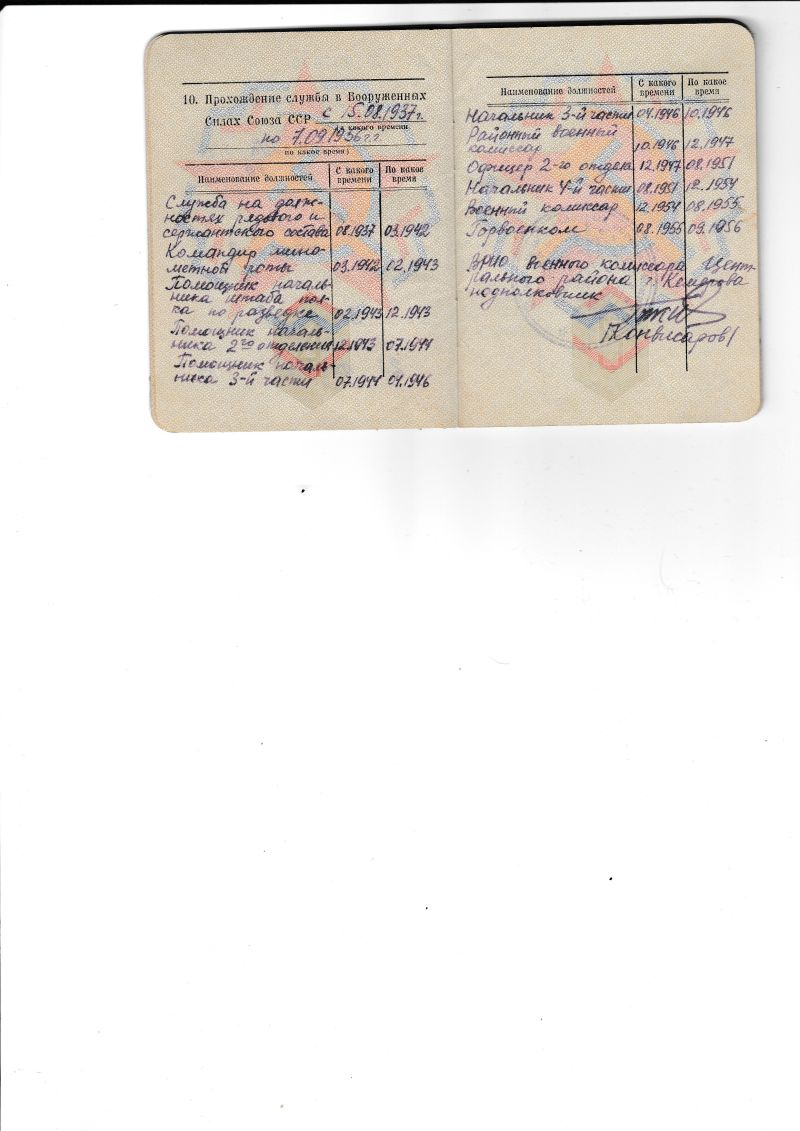 10. Прохождение службы в Вооруженных
Силах Союза ССР с 15.08.1937г.
с какого времени
по 7.09.1956г.г
по какое время)
Наименование должностей С какого времени По какое время
Служба на долж-
ностях рядового и
сержантского состава 08.1937 03.1942
Командир мино-
метной роты 03.1942 02.1943
Помощник началь-
ника штаба пол-
ка по разведке 02.1943 12.1943
Помощник началь-
ника 2го отделения 12.1943 07.1944
Помощник началь-
ника 3-й части 07.1944 04.1946
Наименование должностей С какого времени По какое время
Начальник 3-й части 04.1946 10.1946
Районный военный
комиссар 10.1946 12.1947
Офицер 2-го отдела 12.1947 08.1951
Начальник 4-й части 08.1951 12.1954
Военный комиссар 12.1954 08.1955
Горвоенком 08.1955 09.1956
ВРИО военного комиссара Цент-
рального района г. Кемерова
подполковник